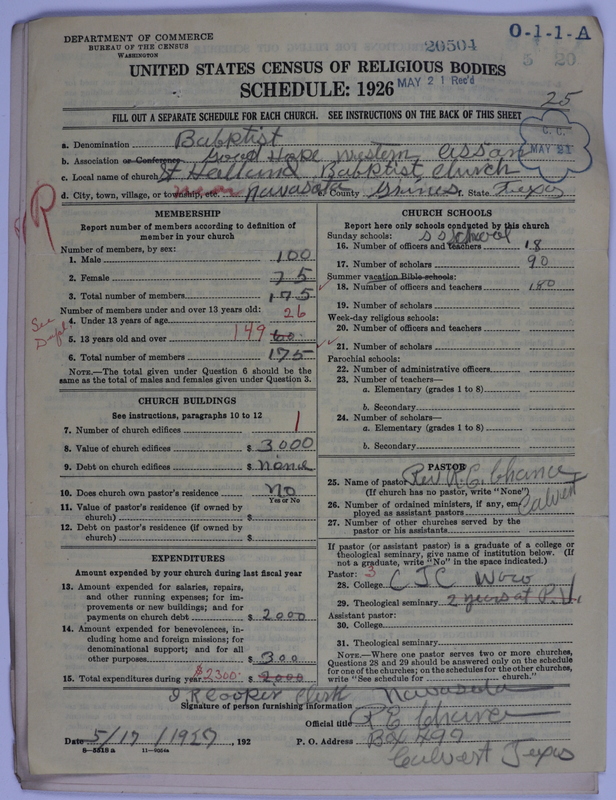 DEPARTMENT OF COMMERCE
BUREAU OF THE CENSUS
WASHINGTON
20504
O-1-1-A
5 20
UNITED STATES CENSUS OF RELIGIOUS BODIES
SCHEDULE: 1926
MAY 21 Rec'd
25
FILL OUT A SEPARATE SCHEDULE FOR EACH CHURCH. SEE INSTRUCTIONS ON THE BACK OF THIS SHEET
C. C.
MAY 21
a. Denomination Babptist
b. Association or Conference Good Hope Western assan
c. Local name of church St Holland Babptist Church
d. City, town, village, or township, etc. near Navasota County Grimes State Texas
R
MEMBERSHIP
Report number of members according to definition of member in your church
Number of members, by sex:
1. Male 100
2. Female 75
3. Total number of members 175
Number of members under and over 13 years old:
4. Under 13 years of age 26
See Defn.
5. 13 years old and over 149 60
6. Total number of members 175
NOTE.—The total given under Question 6 should be the same as the total of males and females given under Question 3.
CHURCH BUILDINGS
See instructions, paragraphs 10 to 12
7. Number of church edifices 1
8. Value of church edifices $ 3000
9. Debt on church edifices $ None
10. Does church own pastor's residence No
Yes or No
11. Value of pastor's residence (if owned by church) $
12. Debt on pastor's residence (if owned by church) $
EXPENDITURES
Amount expended by your church during last fiscal year
13. Amount expended for salaries, repairs, and other running expenses; for improvements or new buildings; and for payments on church debt $ 2000
14. Amount expended for benevolences, including home and foreign missions; for denominational support; and for all other purposes $ 300
15. Total expenditures during year $2300 $ 2000
CHURCH SCHOOLS
Report here only schools conducted by this church
Sunday schools: S S School
16. Number of officers and teachers 18
17. Number of scholars 90
Summer vacation Bible schools:
18. Number of officers and teachers 180
19. Number of scholars
Week-day religious schools:
20. Number of officers and teachers
21. Number of scholars
Parochial schools:
22. Number of administrative officers
23. Number of teachers—
a. Elementary (grades 1 to 8)
b. Secondary
24. Number of scholars—
a. Elementary (grades 1 to 8)
b. Secondary
PASTOR
25. Name of pastor Rev R. E. Chance
(If church has no pastor, write "None") Calvert
26. Number of ordained ministers, if any, employed as assistant pastors
27. Number of other churches served by the pastor or his assistants
If pastor (or assistant pastor) is a graduate of a college or theological seminary, give name of institution below. (If not a graduate, write "No" in the space indicated.)
Pastor: 3
28. College C J C Waco
29. Theological seminary 2 years at P. V.
Assistant pastor:
30. College
31. Theological seminary
NOTE.—Where one pastor serves two or more churches, Questions 28 and 29 should be answered only on the schedule for one of the churches; on the schedules for the other churches, write "See schedule for church."
J R Cooper Clerk Navasota
Signature of person furnishing information
Official title R E Chance
Date 5/17/1927, 192
P. O. Address Box 497
Calvert Texas
8-5515 a 11-9024a